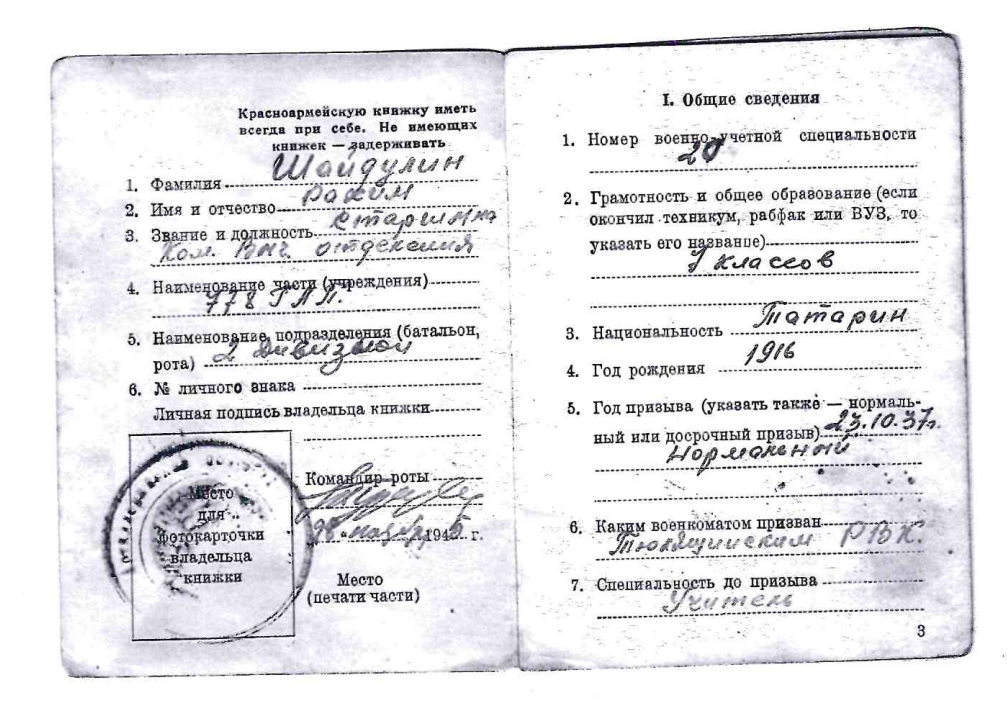 Красноармейскую книжку иметь
всегда при себе. Не имеющих
книжек — задерживать
1. Фамилия Шайдулин
2. Имя и отчество Рахим
3. Звание и должность Старшина
Ком. Выч. отделения
4. Наименование части (учреждения)
778 ГАП.
5. Наименование подразделения (батальон,
рота) 2 дивизион
6. № личного знака
Личная подпись владельца книжки
Командир роты
194 г.
Место
для
фотокарточки
владельца
книжки
Место
(печати части)
I. Общие сведения
1. Номер военно-учетной специальности
20
2. Грамотность и общее образование (если
окончил техникум, рабфак или ВУЗ, то
указать его название)
классов
3. Национальность Татарин
4. Год рождения 1916
5. Год призыва (указать также — нормаль-
ный или досрочный призыв) 23.10.37г.
Нормальный
6. Каким военкоматом призван
Тюлячинским РВК.
7. Специальность до призыва
Учитель
3